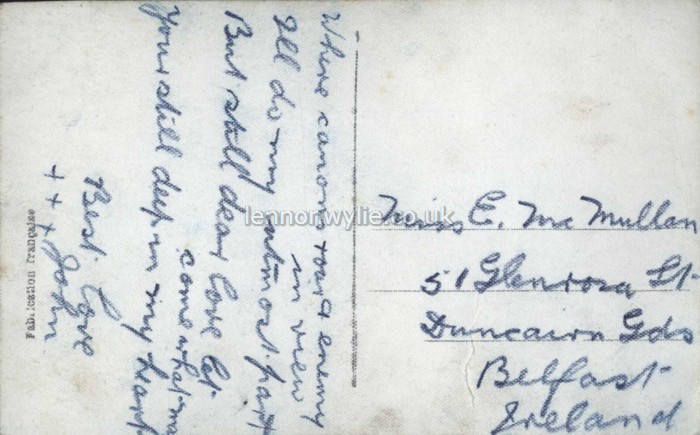 Where canons roar & enemy
in view
Ill do my utmost part
But still dear love let
come what may
Your still deep in my heart
Best Love
+ + + John
Fabrication Française
Miss E. Mc Mullan
51 Glenrosa St
Duncairn Gds
Belfast
Ireland
lennonwylie.co.uk